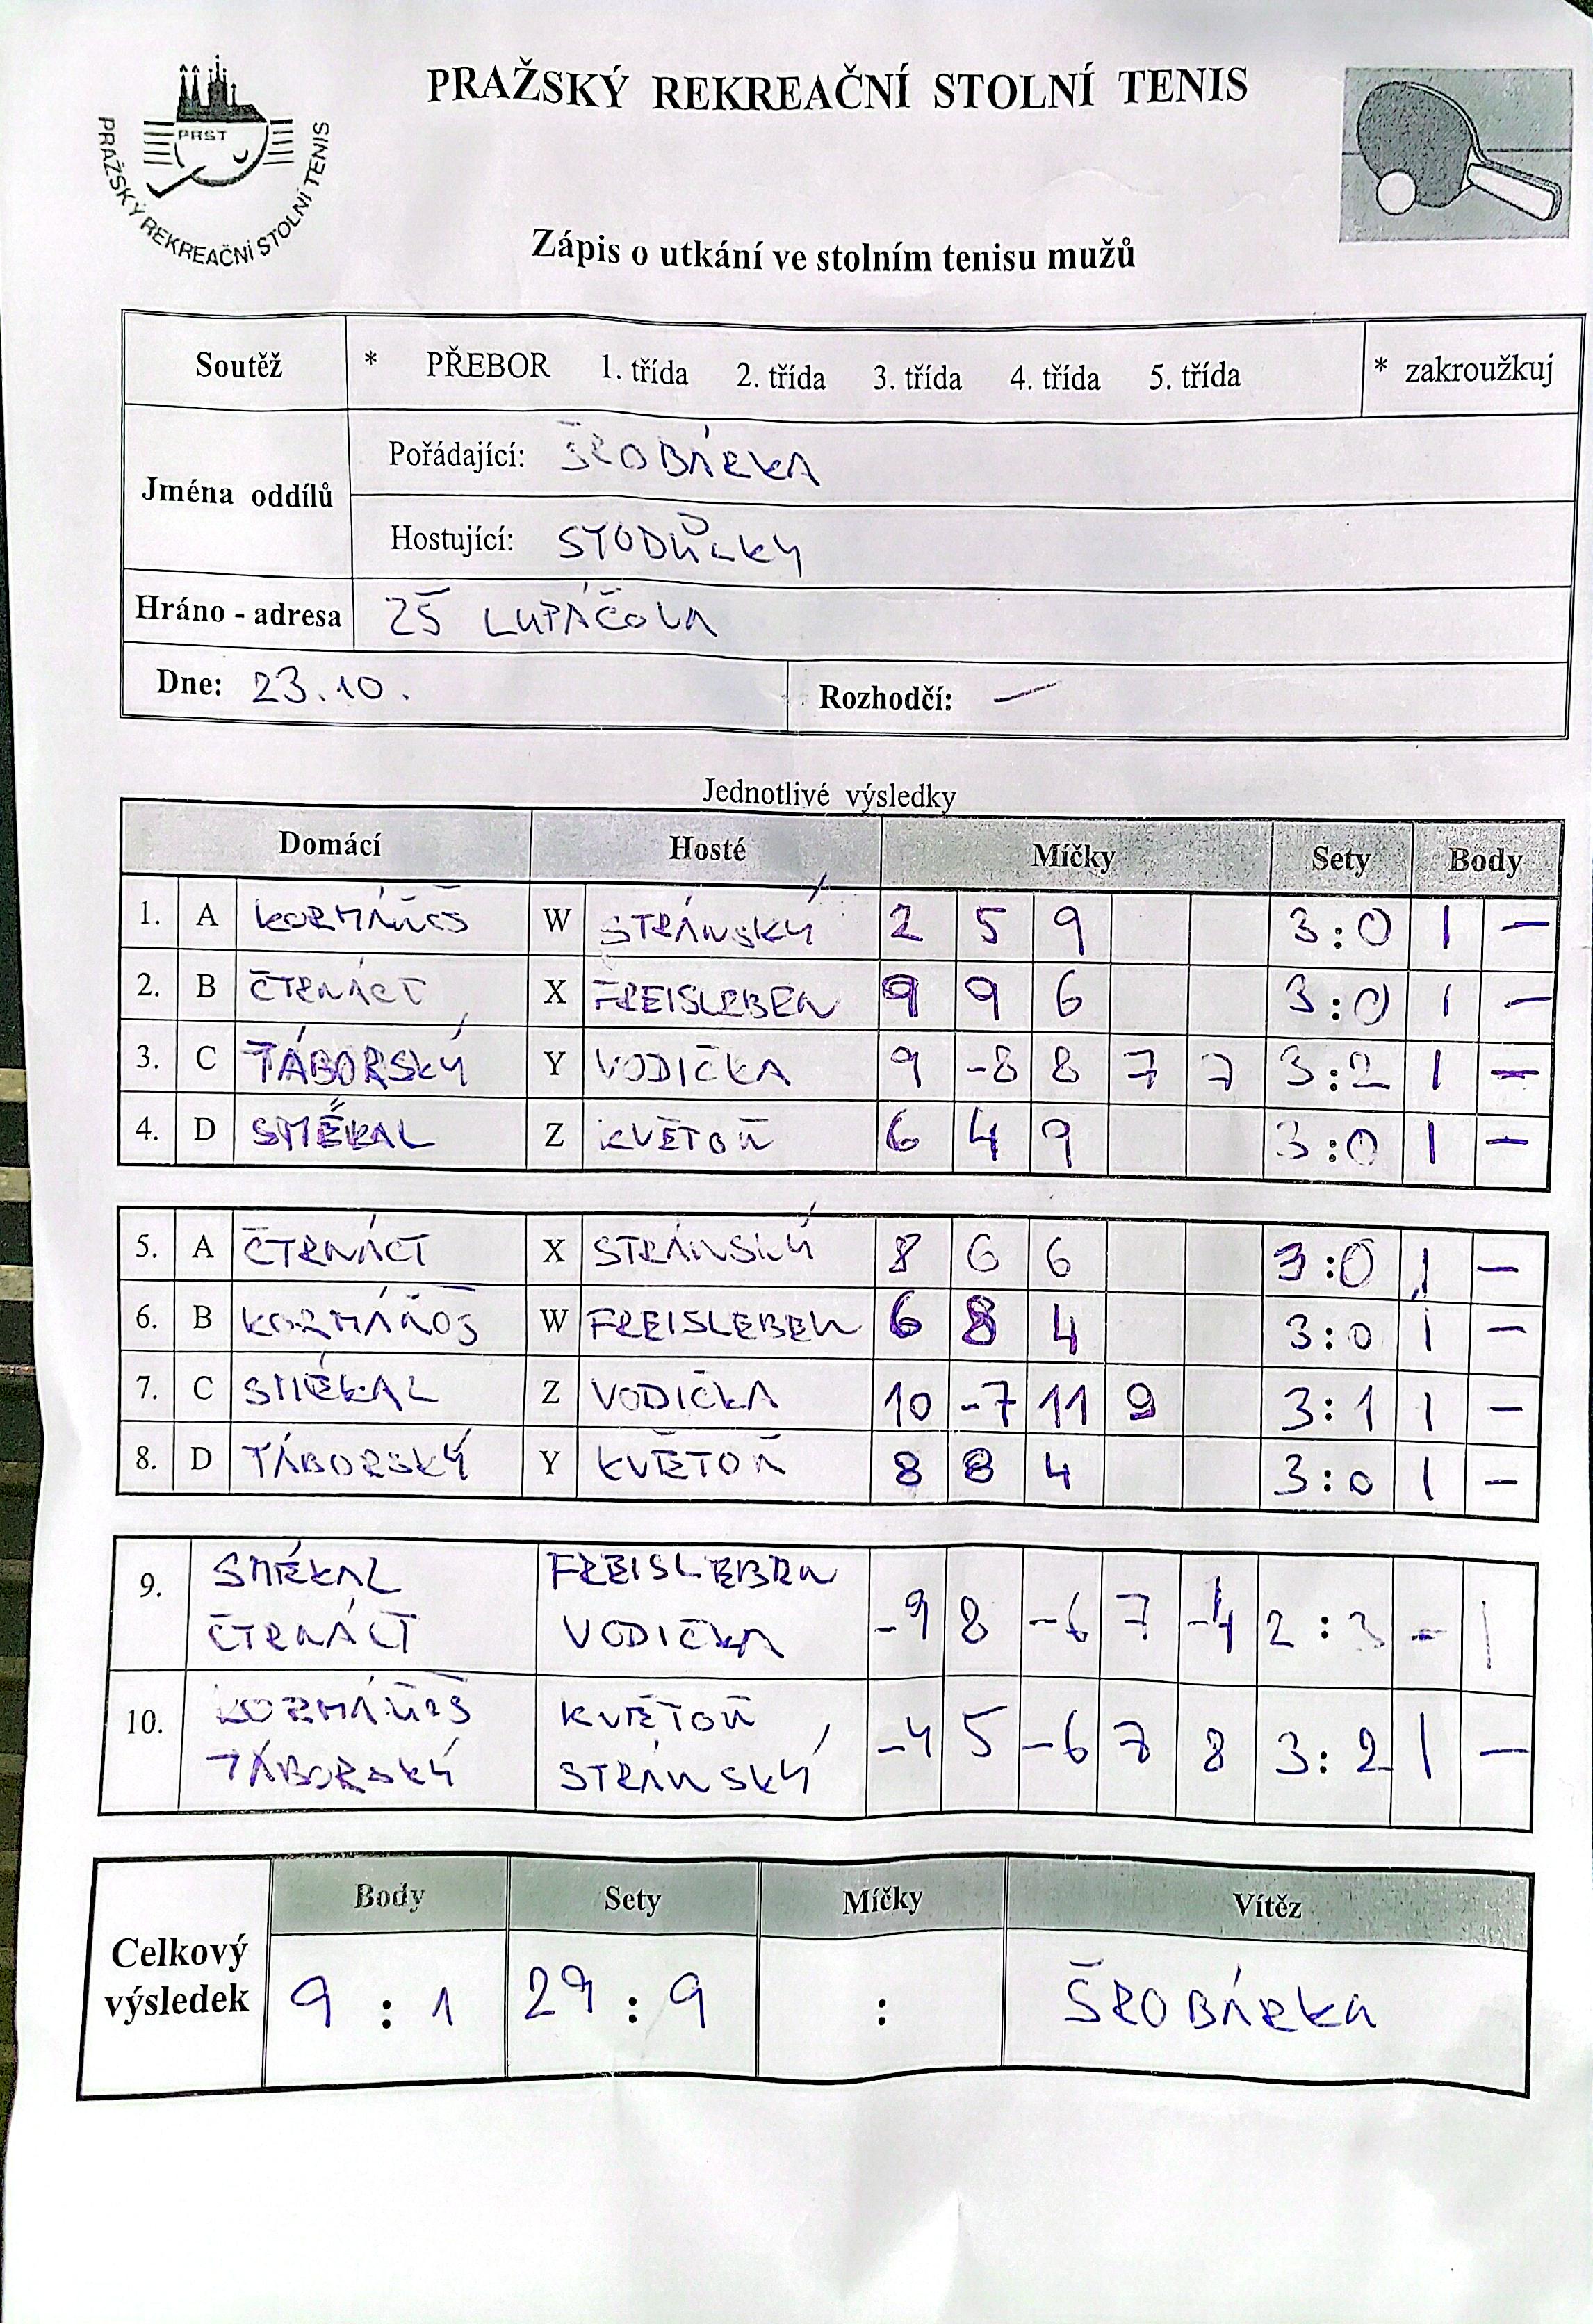 PRAŽSKÝ REKREAČNÍ STOLNÍ TENIS
PRST
PRAŽSKÝ REKREAČNÍ STOLNÍ TENIS
Zápis o utkání ve stolním tenisu mužů
Soutěž * PŘEBOR 1. třída 2. třída 3. třída 4. třída 5. třída * zakroužkuj
Jména oddílů
Pořádající: ŠROBÁRKA
Hostující: STODŮLKY
Hráno - adresa ZŠ LUPÁČOVA
Dne: 23.10. Rozhodčí: —
Jednotlivé výsledky
Domácí Hosté Míčky Sety Body
1. A KORMÁŇOŠ W STRÁNSKÝ 2 5 9 3:0 1 —
2. B ČTRNÁCT X FREISLEBEN 9 9 6 3:0 1 —
3. C TÁBORSKÝ Y VODIČKA 9 -8 8 7 7 3:2 1 —
4. D SMÉKAL Z KVĚTOŇ 6 4 9 3:0 1 —
5. A ČTRNÁCT X STRÁNSKÝ 8 6 6 3:0 1 —
6. B KORMÁŇOŠ W FREISLEBEN 6 8 4 3:0 1 —
7. C SMÉKAL Z VODIČKA 10 -7 11 9 3:1 1 —
8. D TÁBORSKÝ Y KVĚTOŇ 8 8 4 3:0 1 —
9. SMÉKAL FREISLEBEN
ČTRNÁCT VODIČKA -9 8 -6 7 -4 2:3 — 1
10. KORMÁŇOŠ KVĚTOŇ
TÁBORSKÝ STRÁNSKÝ -4 5 -6 7 8 3:2 1 —
Celkový výsledek
Body Sety Míčky Vítěz
9 : 1 29 : 9 : ŠROBÁRKA